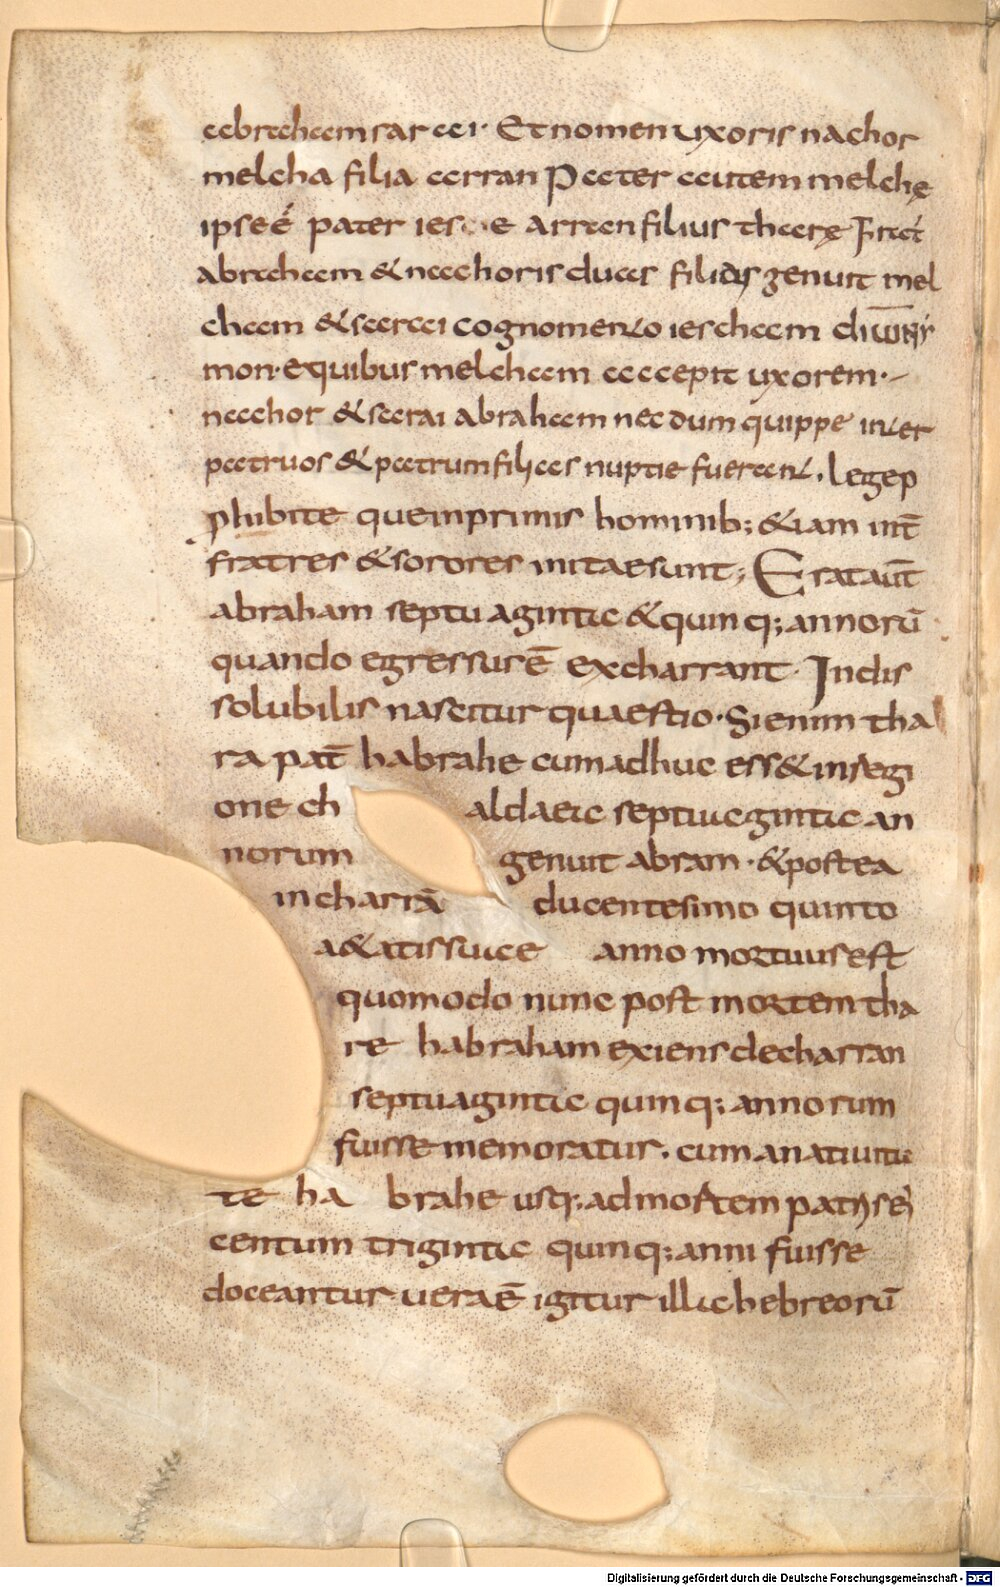 abraham sarai· Et nomen uxoris nachor
melcha filia arran Pater autem melchę
ipse é pater iescae arran filius tharę Frat́
abraham & nachoris duas filias genuit mel
cham & sarai cognomento iescham
mon· e quibus melcham accepit uxorem·
nachor & sarai abraham necdum quippe inter
patruos & patrum filias nuptie fuerant. lege p
phibite que in primis hominib; & iam int̄
fratres & sorores initae sunt; Erat aut̄
abraham septuaginta & quinq; annorū
quando egressus ē excharrant· Indis
solubilis nascitur quaestio· Si enim tha
ra pat̄ habrahe cum adhuc ess& in regi
one ch aldaeic septuaginta an
norum genuit abram · & postea
in charrā ducentesimo quinto
a&atis suae anno mortuus est
quomodo nunc post mortem tha
re habraham exiens decharran
septuaginta quinq; annorum
fuisse memoratur. cum a natiuita
te ha brahe usq; ad mortem patris ei
centum triginta quinq; anni fuisse
doceantur uera ē igitur illa hebreorū
Digitalisierung gefördert durch die Deutsche Forschungsgemeinschaft - DFG